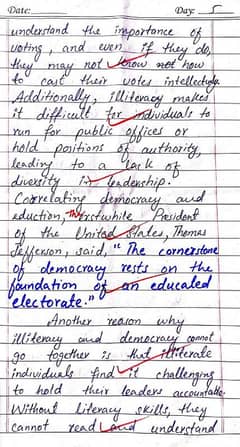 Date: Day: 5
understand the importance of
voting, and even if they do,
they may not know not how
to cast their votes intellectually
Additionally, illiteracy makes
it difficult for individuals to
run for public offices or
hold positions of authority,
leading to a lack of
diversity in leadership.
Correlating democracy and
eduction, Erstwhile President
of the United States, Thomas
Jefferson, said, "The cornerstone
of democracy rests on the
foundation of an educated
electorate."
Another reason why
illiteracy and democracy cannot
go together is that illiterate
individuals find it challenging
to hold their leaders accountable.
Without Literacy skills, they
cannot read and understand